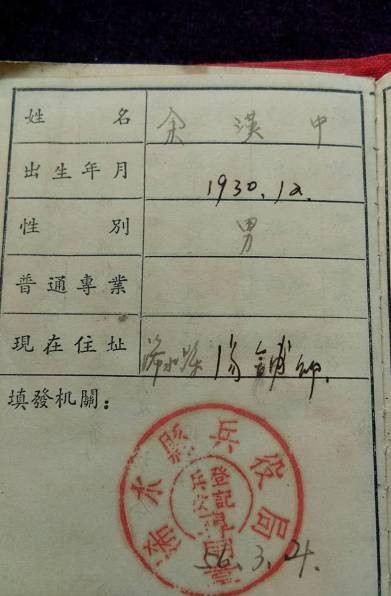 姓名 余漢中
出生年月 1930.12.
性別 男
普通專業
現在住址 浠水縣
填發机關：
浠水縣兵役局
登記
56.3.4.